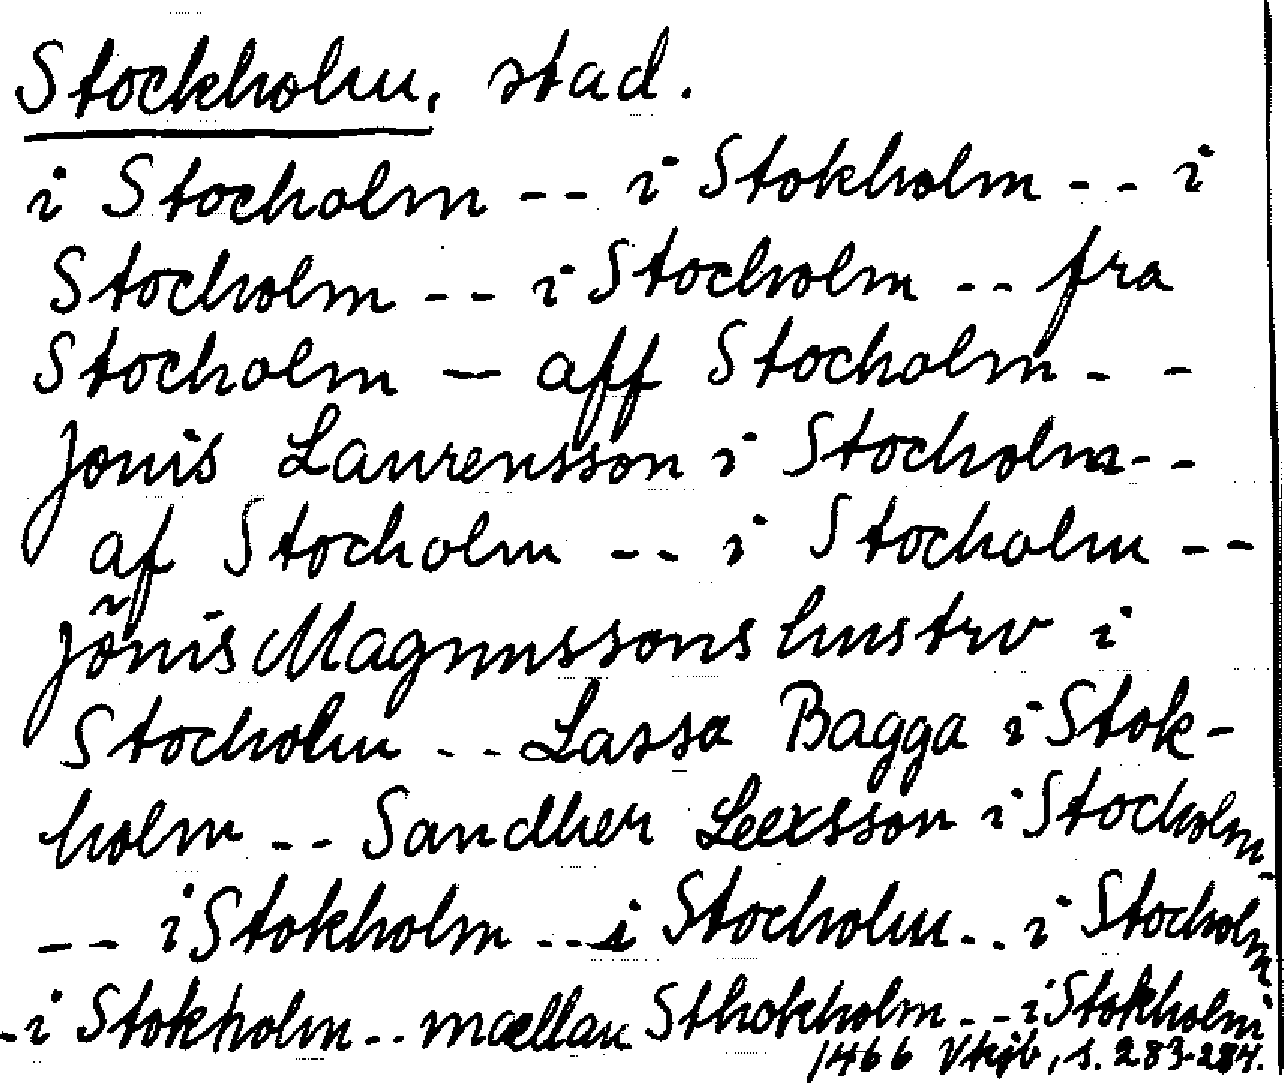 Stockholm, stad.
i Stocholm -- i Stokholm -- i
Stocholm -- i Stocholm -- fra
Stocholm — aff Stocholm --
Jonis Laurensson i Stocholm --
af Stocholm -- i Stocholm --
Jönis Magnussons hustrv i
Stocholm -- Lassa Bagga i Stok-
holm -- Sandher Leexsson i Stocholm -
-- i Stokholm -- i Stocholm -- i Stocholm -
- i Stokholm -- mællan Sthokholm -- i Stokholm
1466 Vtkjb, s. 283-284.